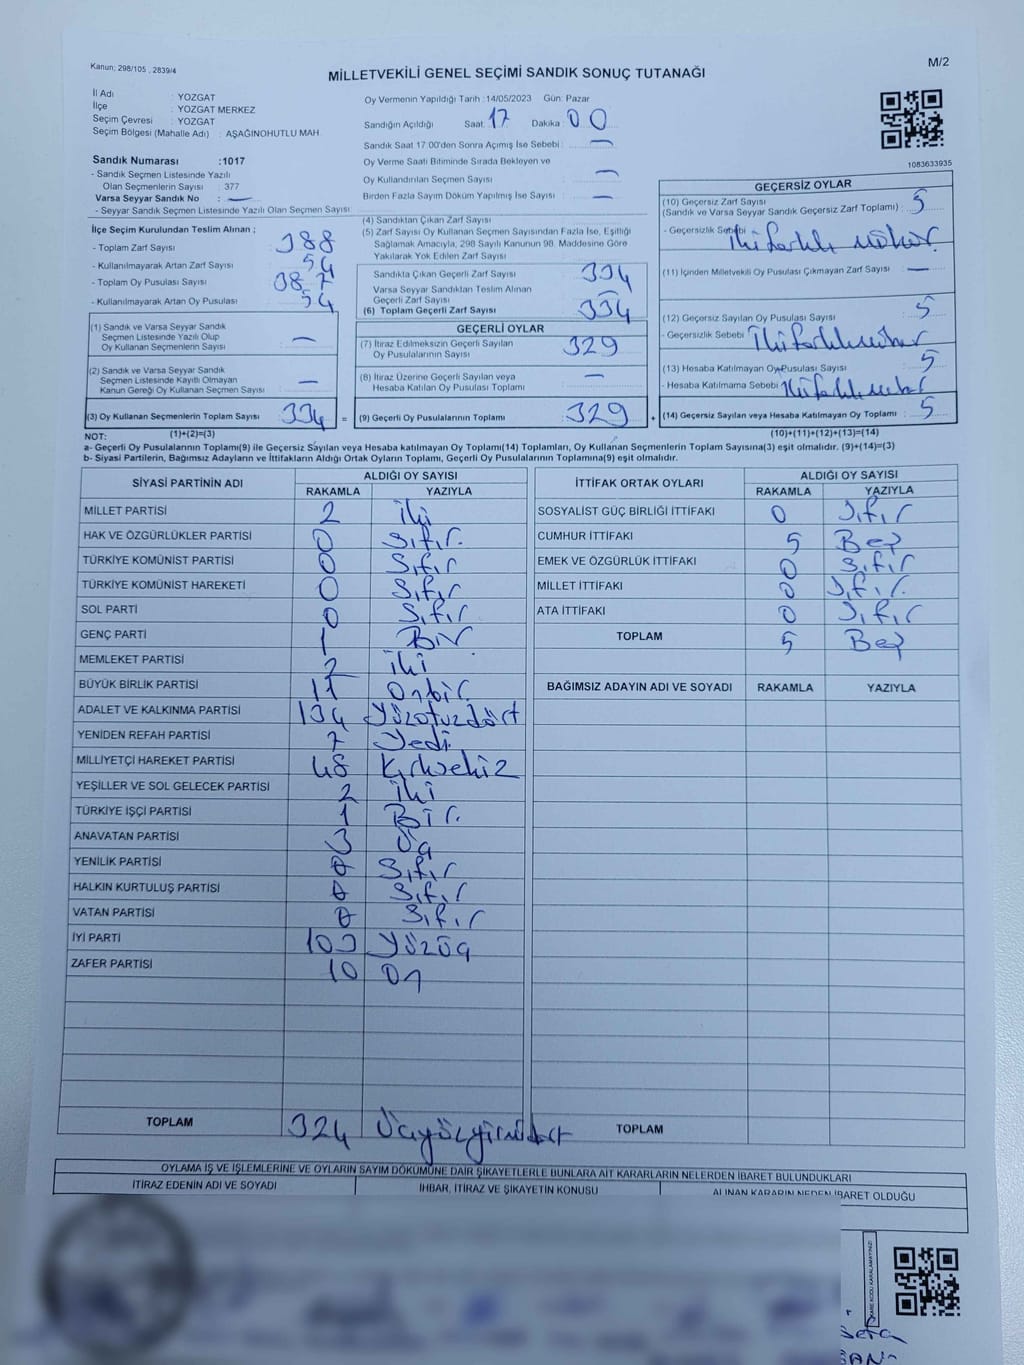 Kanun; 298/105 , 2839/4
M/2
MİLLETVEKİLİ GENEL SEÇİMİ SANDIK SONUÇ TUTANAĞI
İl Adı : YOZGAT
İlçe : YOZGAT MERKEZ
Seçim Çevresi : YOZGAT
Seçim Bölgesi (Mahalle Adı) : AŞAĞINOHUTLU MAH.
Sandık Numarası :1017
- Sandık Seçmen Listesinde Yazılı
Olan Seçmenlerin Sayısı : 377
Varsa Seyyar Sandık No : —
- Seyyar Sandık Seçmen Listesinde Yazılı Olan Seçmen Sayısı
İlçe Seçim Kurulundan Teslim Alınan ;
- Toplam Zarf Sayısı 388
- Kullanılmayarak Artan Zarf Sayısı 54
- Toplam Oy Pusulası Sayısı 387
- Kullanılmayarak Artan Oy Pusulası 54
(1) Sandık ve Varsa Seyyar Sandık
Seçmen Listesinde Yazılı Olup
Oy Kullanan Seçmenlerin Sayısı —
(2) Sandık ve Varsa Seyyar Sandık
Seçmen Listesinde Kayıtlı Olmayan
Kanun Gereği Oy Kullanan Seçmen Sayısı : —
(3) Oy Kullanan Seçmenlerin Toplam Sayısı 334 =
Oy Vermenin Yapıldığı Tarih :14/05/2023 Gün: Pazar
Sandığın Açıldığı Saat: 17 Dakika : 00
Sandık Saat 17:00'den Sonra Açımış İse Sebebi : —
Oy Verme Saati Bitiminde Sırada Bekleyen ve
Oy Kullandırılan Seçmen Sayısı : —
Birden Fazla Sayım Döküm Yapılmış İse Sayısı : —
(4) Sandıktan Çıkan Zarf Sayısı
(5) Zarf Sayısı Oy Kullanan Seçmen Sayısından Fazla İse, Eşitliği
Sağlamak Amacıyla, 298 Sayılı Kanunun 98. Maddesine Göre
Yakılarak Yok Edilen Zarf Sayısı
Sandıkta Çıkan Geçerli Zarf Sayısı 334
Varsa Seyyar Sandıktan Teslim Alınan
Geçerli Zarf Sayısı —
(6) Toplam Geçerli Zarf Sayısı 334
GEÇERLİ OYLAR
(7) İtiraz Edilmeksizin Geçerli Sayılan
Oy Pusulalarının Sayısı 329
(8) İtiraz Üzerine Geçerli Sayılan veya
Hesaba Katılan Oy Pusulası Toplamı —
(9) Geçerli Oy Pusulalarının Toplamı 329 +
1083633935
GEÇERSİZ OYLAR
(10) Geçersiz Zarf Sayısı : 5
(Sandık ve Varsa Seyyar Sandık Geçersiz Zarf Toplamı)
- Geçersizlik Sebebi İki farklı mühür.
(11) İçinden Milletvekili Oy Pusulası Çıkmayan Zarf Sayısı : —
(12) Geçersiz Sayılan Oy Pusulası Sayısı : 5
- Geçersizlik Sebebi İki farklı mühür
(13) Hesaba Katılmayan Oy Pusulası Sayısı : 5
- Hesaba Katılmama Sebebi İki farklı mühür
(14) Geçersiz Sayılan veya Hesaba Katılmayan Oy Toplamı : 5
NOT: (1)+(2)=(3) (10)+(11)+(12)+(13)=(14)
a- Geçerli Oy Pusulalarının Toplamı(9) ile Geçersiz Sayılan veya Hesaba katılmayan Oy Toplamı(14) Toplamları, Oy Kullanan Seçmenlerin Toplam Sayısına(3) eşit olmalıdır. (9)+(14)=(3)
b- Siyasi Partilerin, Bağımsız Adayların ve İttifakların Aldığı Ortak Oyların Toplamı, Geçerli Oy Pusulalarının Toplamına(9) eşit olmalıdır.
SİYASİ PARTİNİN ADI ALDIĞI OY SAYISI
RAKAMLA YAZIYLA
MİLLET PARTİSİ 2 İki
HAK VE ÖZGÜRLÜKLER PARTİSİ 0 Sıfır.
TÜRKİYE KOMÜNİST PARTİSİ 0 Sıfır
TÜRKİYE KOMÜNİST HAREKETİ 0 Sıfır
SOL PARTİ 0 Sıfır
GENÇ PARTİ 1 Bir
MEMLEKET PARTİSİ 2 İki
BÜYÜK BİRLİK PARTİSİ 11 Onbir.
ADALET VE KALKINMA PARTİSİ 134 Yüzotuzdört
YENİDEN REFAH PARTİSİ 7 Yedi
MİLLİYETÇİ HAREKET PARTİSİ 48 Kırksekiz
YEŞİLLER VE SOL GELECEK PARTİSİ 2 İki
TÜRKİYE İŞÇİ PARTİSİ 1 Bir.
ANAVATAN PARTİSİ 3 Üç
YENİLİK PARTİSİ 0 Sıfır
HALKIN KURTULUŞ PARTİSİ 0 Sıfır
VATAN PARTİSİ 0 Sıfır
İYİ PARTİ 103 Yüzüç
ZAFER PARTİSİ 10 On
TOPLAM 324 Üçyüzyirmidört
İTTİFAK ORTAK OYLARI ALDIĞI OY SAYISI
RAKAMLA YAZIYLA
SOSYALİST GÜÇ BİRLİĞİ İTTİFAKI 0 Sıfır
CUMHUR İTTİFAKI 5 Beş
EMEK VE ÖZGÜRLÜK İTTİFAKI 0 Sıfır
MİLLET İTTİFAKI 0 Sıfır.
ATA İTTİFAKI 0 Sıfır
TOPLAM 5 Beş
BAĞIMSIZ ADAYIN ADI VE SOYADI RAKAMLA YAZIYLA
TOPLAM
OYLAMA İŞ VE İŞLEMLERİNE VE OYLARIN SAYIM DÖKÜMÜNE DAİR ŞİKAYETLERLE BUNLARA AİT KARARLARIN NELERDEN İBARET BULUNDUKLARI
İTİRAZ EDENİN ADI VE SOYADI İHBAR, İTİRAZ VE ŞİKAYETİN KONUSU ALINAN KARARIN NEDEN İBARET OLDUĞU
KARE KODU KARALAMAYINIZ!